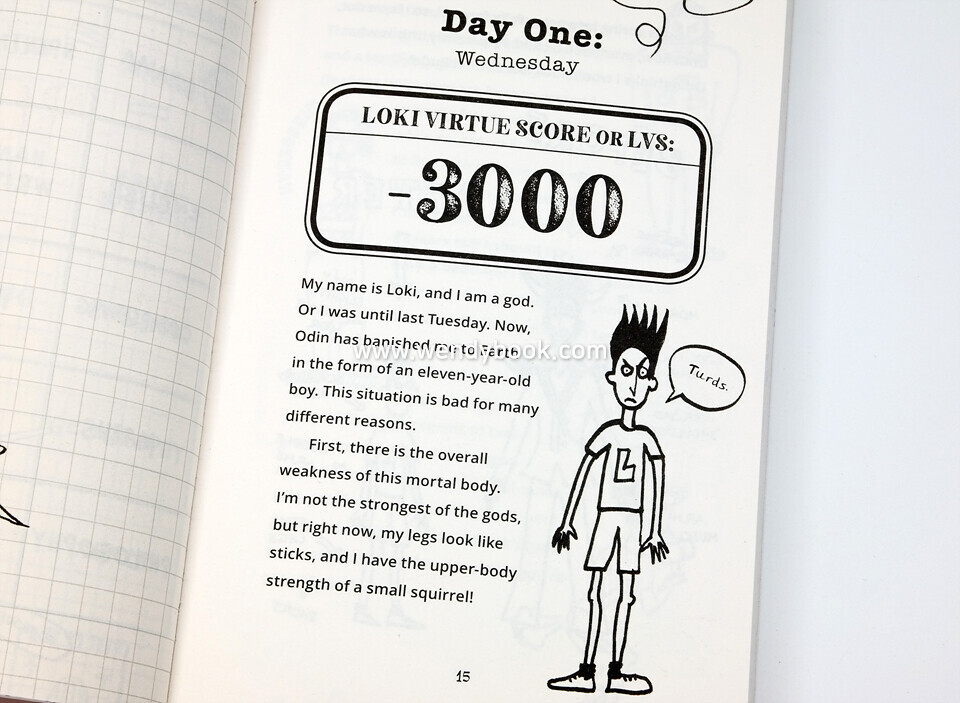 Day One:
Wednesday
LOKI VIRTUE SCORE OR LVS:
-3000
My name is Loki, and I am a god.
Or I was until last Tuesday. Now,
Odin has banished me to Earth
in the form of an eleven-year-old
boy. This situation is bad for many
different reasons.
First, there is the overall
weakness of this mortal body.
I'm not the strongest of the gods,
but right now, my legs look like
sticks, and I have the upper-body
strength of a small squirrel!
Turds.
L
15
www.wendybook.com